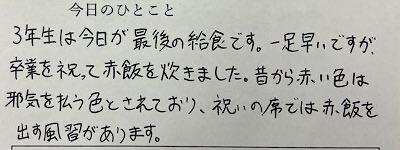 今日のひとこと
3年生は今日が最後の給食です。一足早いですが、
卒業を祝って赤飯を炊きました。昔から赤い色は
邪気を払う色とされており、祝いの席では赤飯を
出す風習があります。